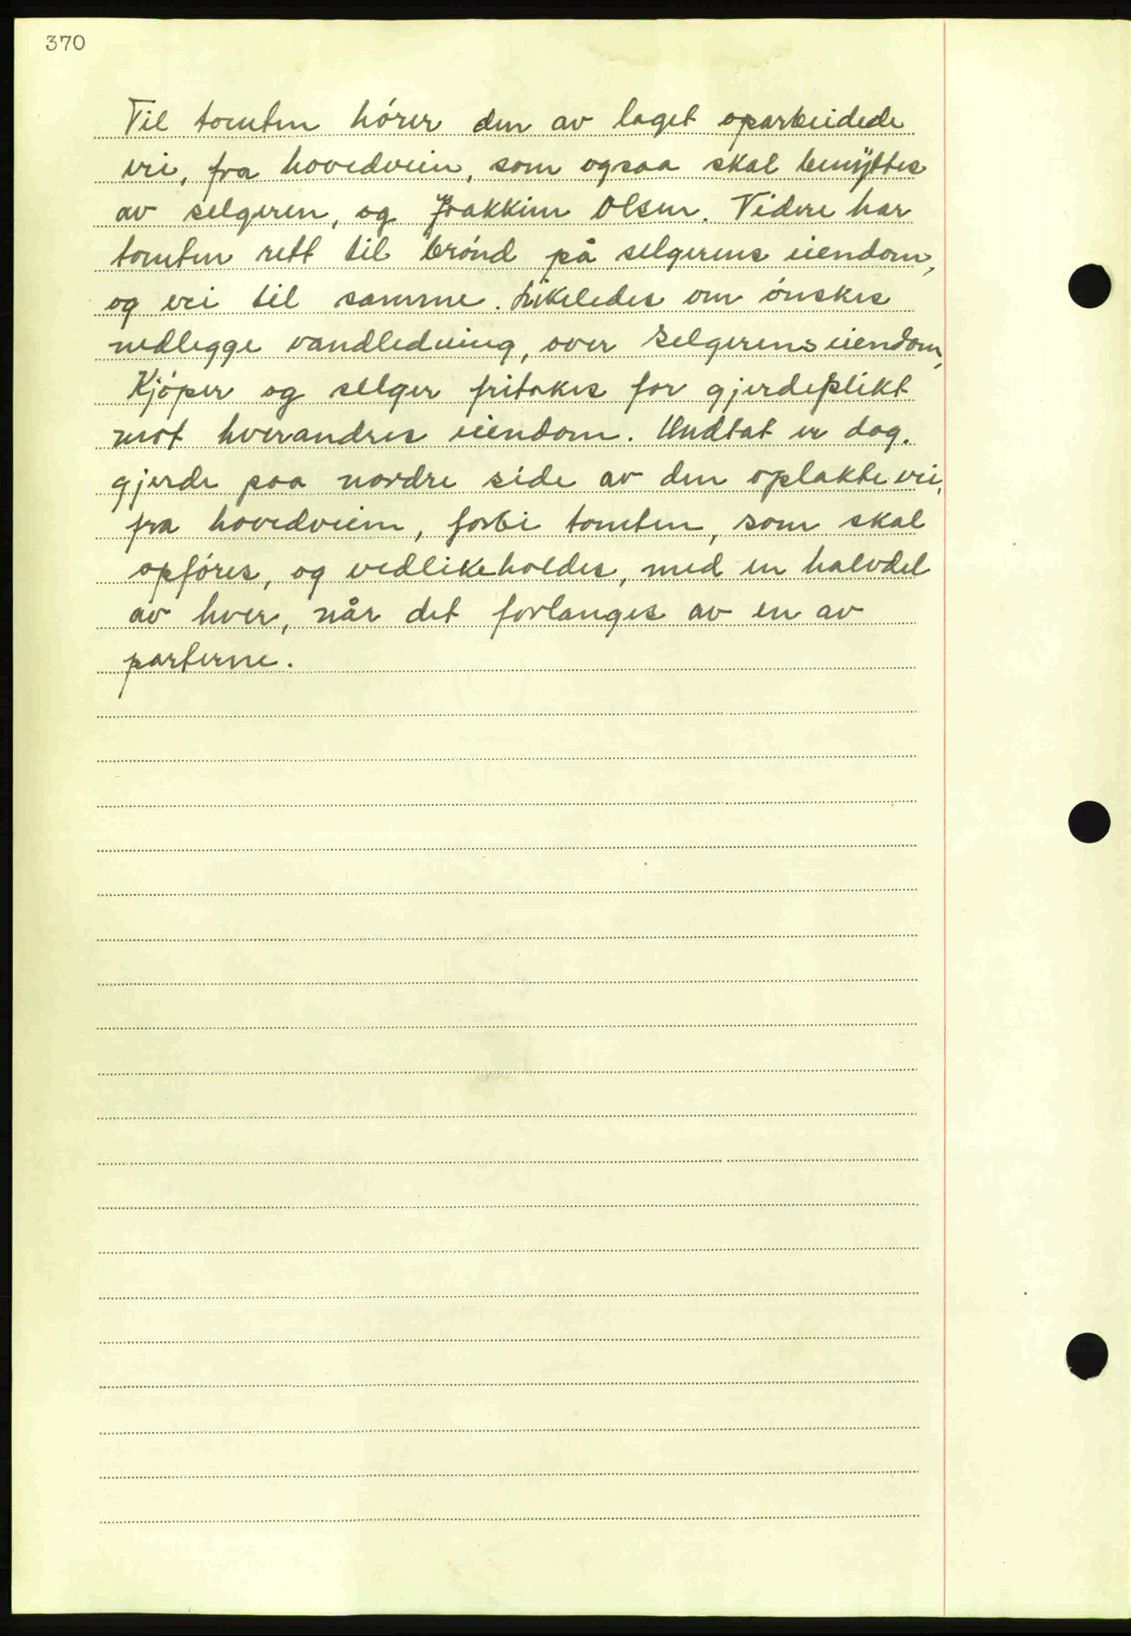 370
Til tomten hører den av laget oparbeidede
vei, fra hovedveien, som ogsaa skal benyttes
av selgeren, og Joakkim Olsen. Videre har
tomten rett til brønd på selgerens eiendom,
og vei til samme. Likeledes om ønskes
nedlegge vandledning, over selgerens eiendom,
Kjøper og selger fritakes for gjerdeplikt
mot hverandres eiendom. Undtat er dog.
gjerde paa nordre side av den oplakte vei,
fra hovedveien, forbi tomten, som skal
opføres, og vedlikeholdes, med en halvdel
av hver, når det forlanges av en av
parterne.